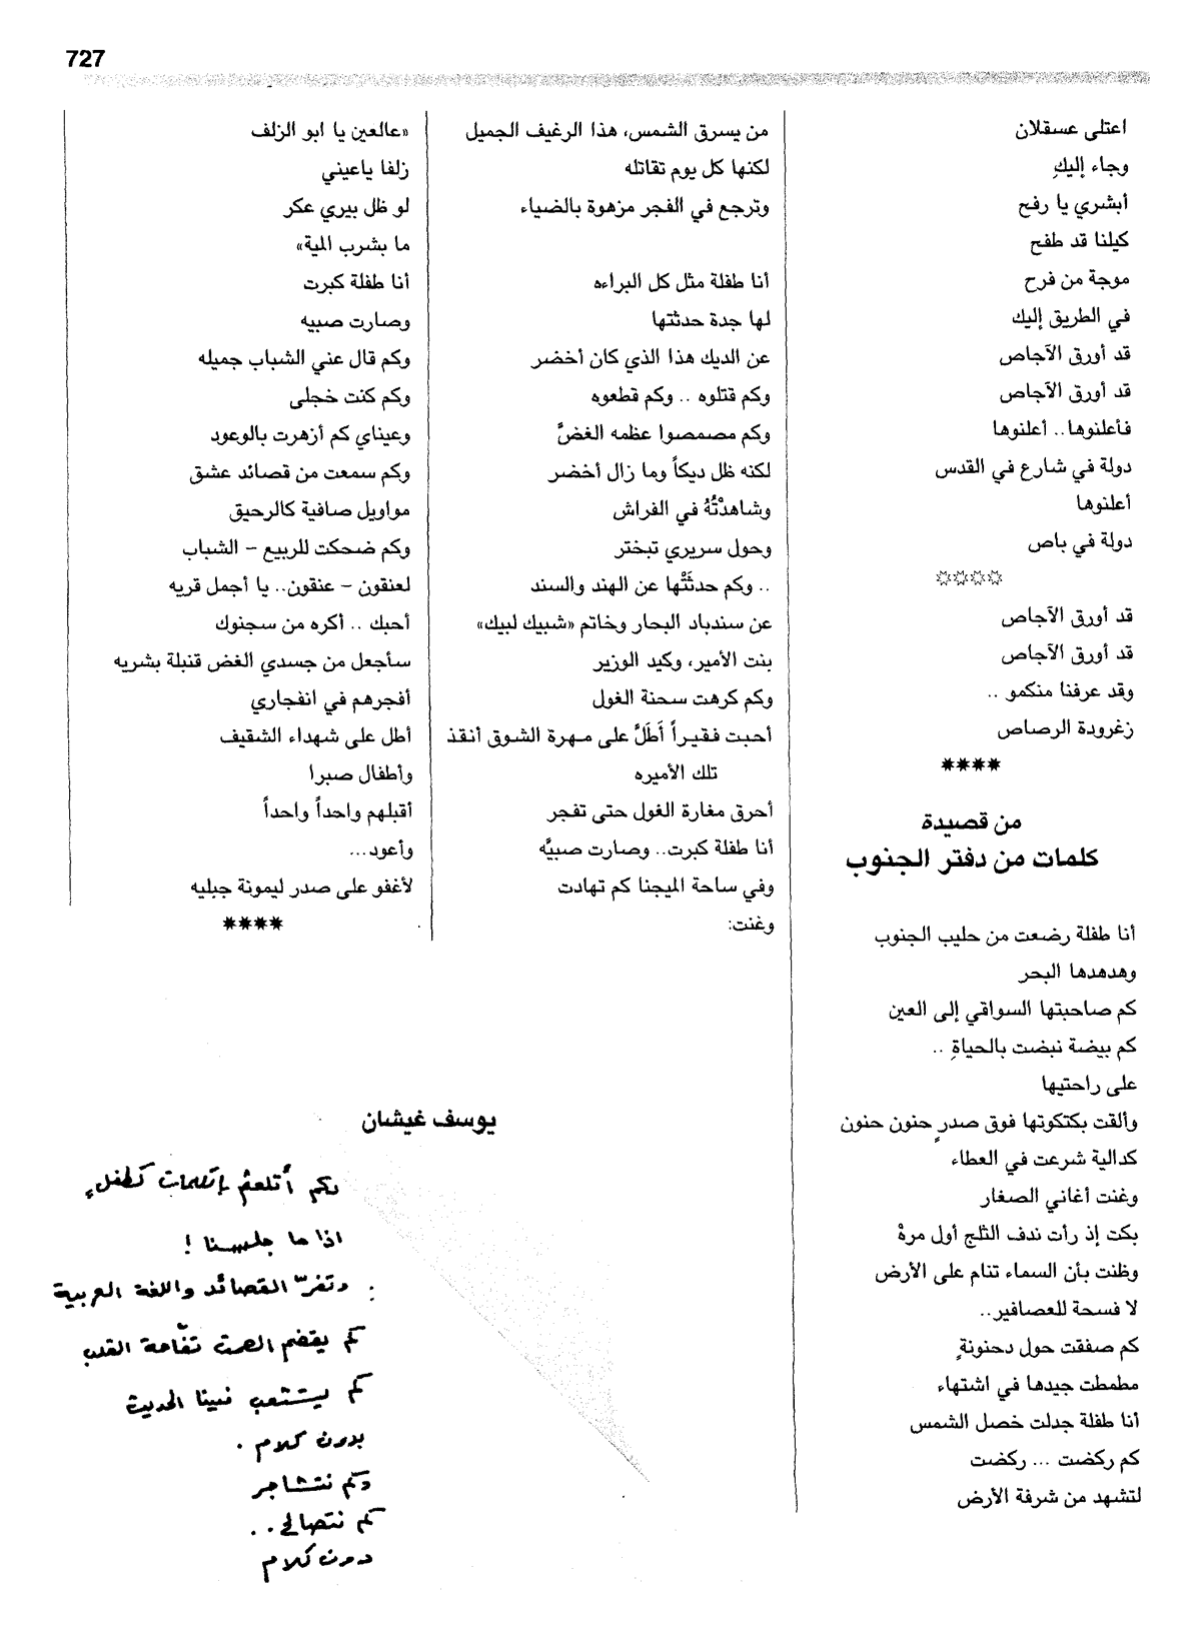 727
اعتلى عسقلان
وجاء إليكِ
أبشري يا رفح
كيلنا قد طفح
موجة من فرح
في الطريق إليك
قد أورق الآجاص
قد أورق الآجاص
فأعلنوها.. أعلنوها
دولة في شارع في القدس
أعلنوها
دولة في باص
☼☼☼☼
قد أورق الآجاص
قد أورق الآجاص
وقد عرفنا منكمو ..
زغرودة الرصاص
****
من قصيدة
كلمات من دفتر الجنوب
أنا طفلة رضعت من حليب الجنوب
وهدهدها البحر
كم صاحبتها السواقي إلى العين
كم بيضة نبضت بالحياةِ ..
على راحتيها
وألقت بكتكوتها فوق صدرٍ حنون حنون
كدالية شرعت في العطاء
وغنت أغاني الصغار
بكت إذ رأت ندف الثلج أول مرهْ
وظنت بأن السماء تنام على الأرض
لا فسحة للعصافير..
كم صفقت حول دحنونةٍ
مطمطت جيدها في اشتهاء
أنا طفلة جدلت خصل الشمس
كم ركضت ... ركضت
لتشهد من شرفة الأرض
من يسرق الشمس، هذا الرغيف الجميل
لكنها كل يوم تقاتله
وترجع في الفجر مزهوة بالضياء
أنا طفلة مثل كل البراءه
لها جدة حدثتها
عن الديك هذا الذي كان أخضر
وكم قتلوه .. وكم قطعوه
وكم مصمصوا عظمه الغضَّ
لكنه ظل ديكاً وما زال أخضر
وشاهدْتُهُ في الفراش
وحول سريري تبختر
.. وكم حدثَتْها عن الهند والسند
عن سندباد البحار وخاتم «شبيك لبيك»
بنت الأمير، وكيد الوزير
وكم كرهت سحنة الغول
أحبت فقيراً أَطَلَّ على مهرة الشوق أنقذ
تلك الأميره
أحرق مغارة الغول حتى تفجر
أنا طفلة كبرت.. وصارت صبيَّه
وفي ساحة الميجنا كم تهادت
وغنت:
«عالعين يا ابو الزلف
زلفا ياعيني
لو ظل بيري عكر
ما بشرب المية»
أنا طفلة كبرت
وصارت صبيه
وكم قال عني الشباب جميله
وكم كنت خجلى
وعيناي كم أزهرت بالوعود
وكم سمعت من قصائد عشق
مواويل صافية كالرحيق
وكم ضحكت للربيع – الشباب
لعنقون – عنقون.. يا أجمل قريه
أحبك .. أكره من سجنوك
سأجعل من جسدي الغض قنبلة بشريه
أفجرهم في انفجاري
أطل على شهداء الشقيف
وأطفال صبرا
أقبلهم واحداً واحداً
وأعود...
لأغفو على صدر ليمونة جبليه
****
يوسف غيشان
وكم أتلعثم بالكلمات كطفلٍ
اذا ما جلسنا !
وتفرّ القصائد واللغة العربية
كم يقضم الصمت تفّاحة القلب
كم يتشعب فينا الحديث
بدون كلام .
وكم نتشاجر
كم نتصالح..
دون كلام